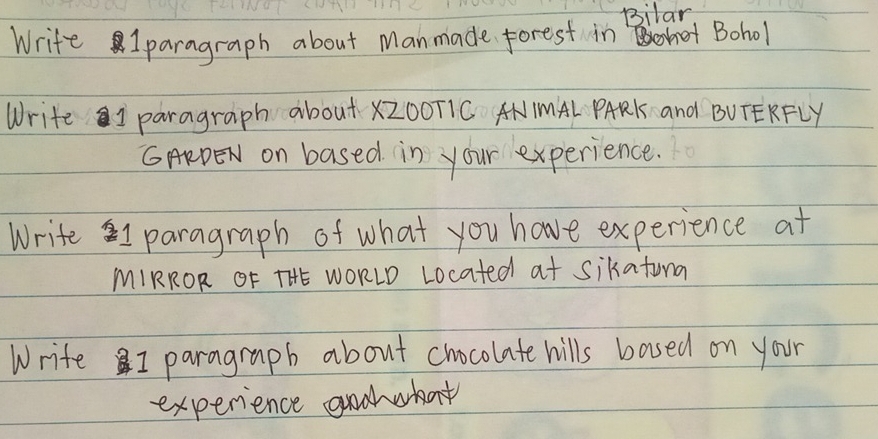 Bilar
Write 1 paragraph about Man made Forest in Bohol
Write 1 paragraph about XZOOTIC ANIMAL PARK and BUTERFLY
GARDEN on based in your experience.
Write 1 paragraph of what you have experience at
MIRROR OF THE WORLD Located at Sikatuna
Write 1 paragraph about chocolate hills based on your
experience